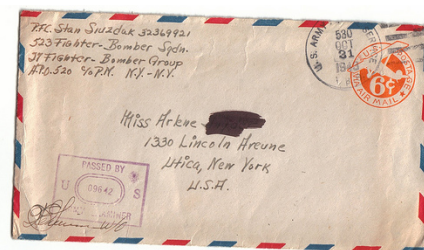 P.F.C. Stan Siuzdak 32369921
523 Fighter-Bomber Sqdn.
27 Fighter-Bomber Group
A.P.O. 520 c/o P.M. N.Y.-N.Y.
U.S. ARMY
530
OCT
31
U.S. POSTAGE
6¢
VIA AIR MAIL
Miss Arlene
1330 Lincoln Avenue
Utica, New York
U.S.A.
PASSED BY
U S
09642
ARMY EXAMINER